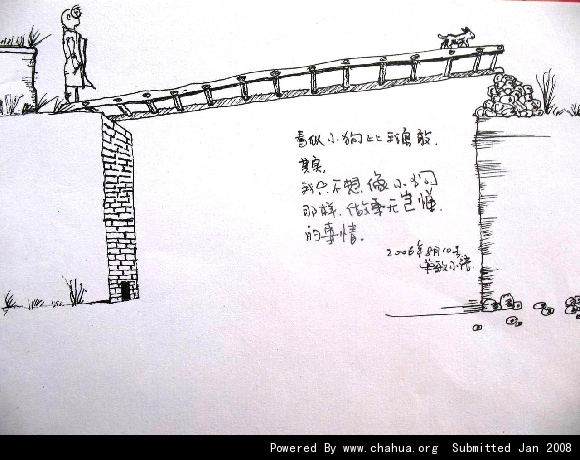 看似小狗比我勇敢.
其实,
我只不想像小狗
那样.做事无
的事情.
2006年8月10号
Powered By www.chahua.org Submitted Jan 2008